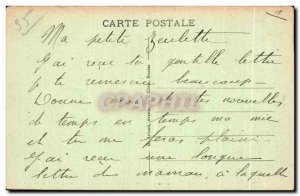 CARTE POSTALE
Ma petite
J'ai reçu ta gentille lettre
je te remercie beaucoup
Donne moi de tes nouvelles
de temps en temps ma mie
et tu me feras plaisir
J'ai reçu une longue
lettre de maman, à laquelle